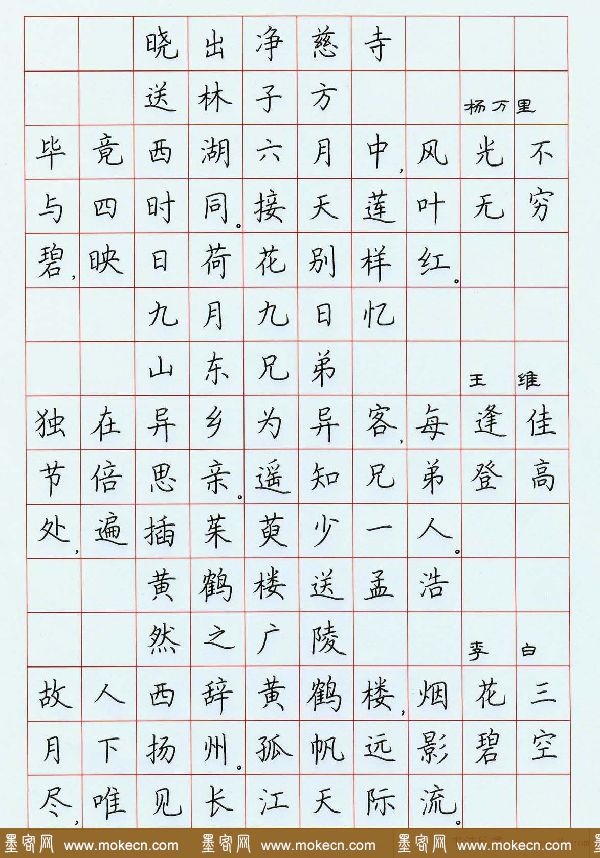 晓出净慈寺
送林子方 杨万里
毕竟西湖六月中,风光不
与四时同。接天莲叶无穷
碧,映日荷花别样红。
九月九日忆
山东兄弟 王维
独在异乡为异客,每逢佳
节倍思亲。遥知兄弟登高
处,遍插茱萸少一人。
黄鹤楼送孟浩
然之广陵 李白
故人西辞黄鹤楼,烟花三
月下扬州。孤帆远影碧空
尽,唯见长江天际流。
墨客网 www.mokecn.com 墨客网 www.mokecn.com 墨客网 www.mokecn.com